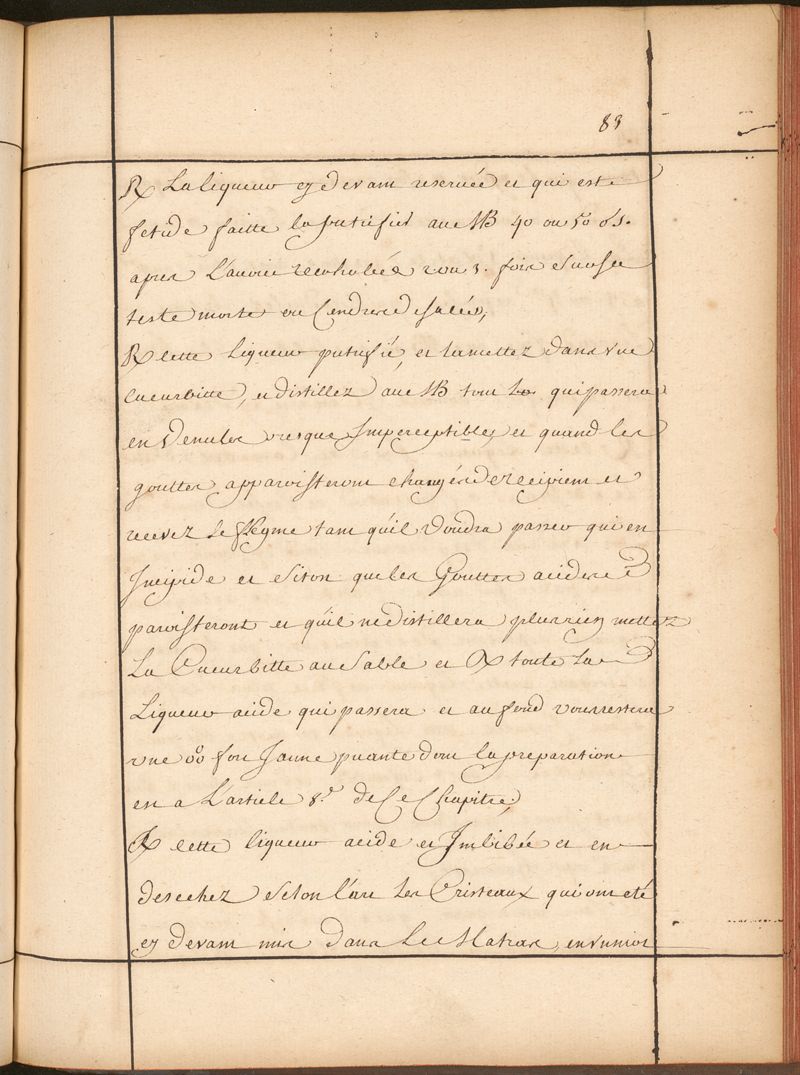 83
℞ La liqueur cy devant reservée et qui est
fetide faitte la putrifier au MB 40 ou 50 d's.
apres L'avoir recohobée 2 ou 3. fois sur sa
teste morte ou Cendres desalés,
℞ cette Liqueur putrifié, et la mettez dans vne
Cucurbitte, et distillez au MB tout ce qui passera
en Venules presque Imperceptibles et quand les
gouttes apparoisteront changés de recipient et
recevez le flegme tant quil voudra passer qui en
Insipide et sitost que les Gouttes acides
paroisteront et quil ne distillera plus rien mettez
La Cucurbitte au Sable et ℞ toute La
Liqueur acide qui passera et au fond vous restera
vne fort Jaune puante dont la preparation
en a L'article 8.e de Ce Chapitre,
℞ cette liqueur acide et Imbibée et en
desechez selon l'art Les Cristeaux qui ont eté
cy devant mis dans Le Matras, en vnion